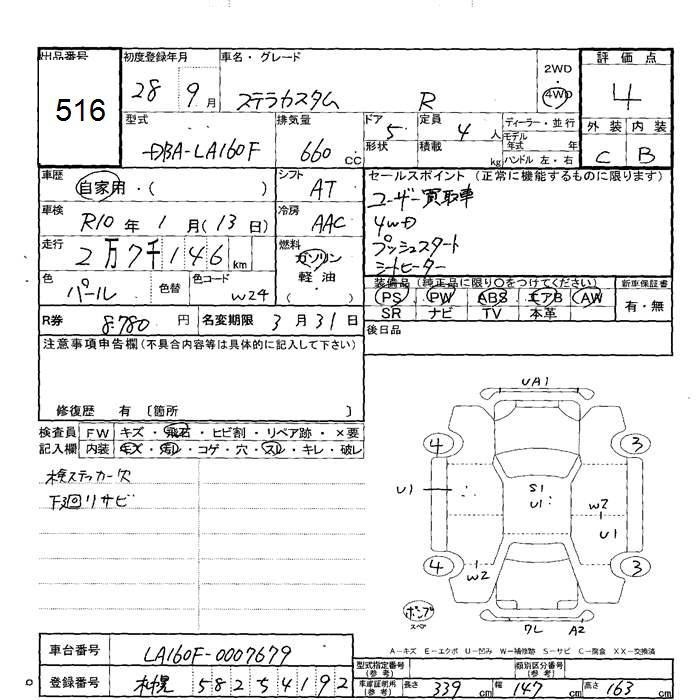 出品番号
516
初度登録年月
28 9月
車名・グレード
ステラカスタム R
2WD
・
4WD
評価点
4
外装 内装
C B
型式
DBA-LA160F
排気量
660 CC
ドア
5
形状
定員
4 人
積載
kg
ディーラー・並行
モデル年式 年
ハンドル 左・右
車歴
自家用・( )
シフト
AT
車検
R10年 1月(13日)
冷房
AAC
走行
2万7千146km
燃料
ガソリン
軽・油
( )
色
パール
色替
色コード
W24
セールスポイント(正常に機能するものに限ります)
ユーザー買取車
4WD
プッシュスタート
シートヒーター
装備品(純正品に限り○をつけてください)
PS PW ABS エアB AW
SR ナビ TV 本革
新車保証書
有・無
R券
8.780 円
名変期限
3月31日
後日品
注意事項申告欄(不具合内容等は具体的に記入して下さい)
修復歴 有 〔箇所 〕
検査員
記入欄
FW キズ・飛石・ヒビ割・リペア跡・×要
内装 キズ・汚レ・コゲ・穴・スレ・キレ・破レ
検ステッカー欠
下廻リサビ
UA1
4 3
U1
S1
U1
W2
U1
4 3
W2
ポンプ
スペア
ワレ A2
A-キズ E-エクボ U-凹み W-補修跡 S-サビ C-腐食 XX-交換済
車台番号
LA160F-0007679
登録番号
札幌 582 5 4192
型式指定番号
(参考)
類別区分番号
(参考)
車庫証明用
(参考)
長さ 339 cm
幅 147 cm
高さ 163 cm